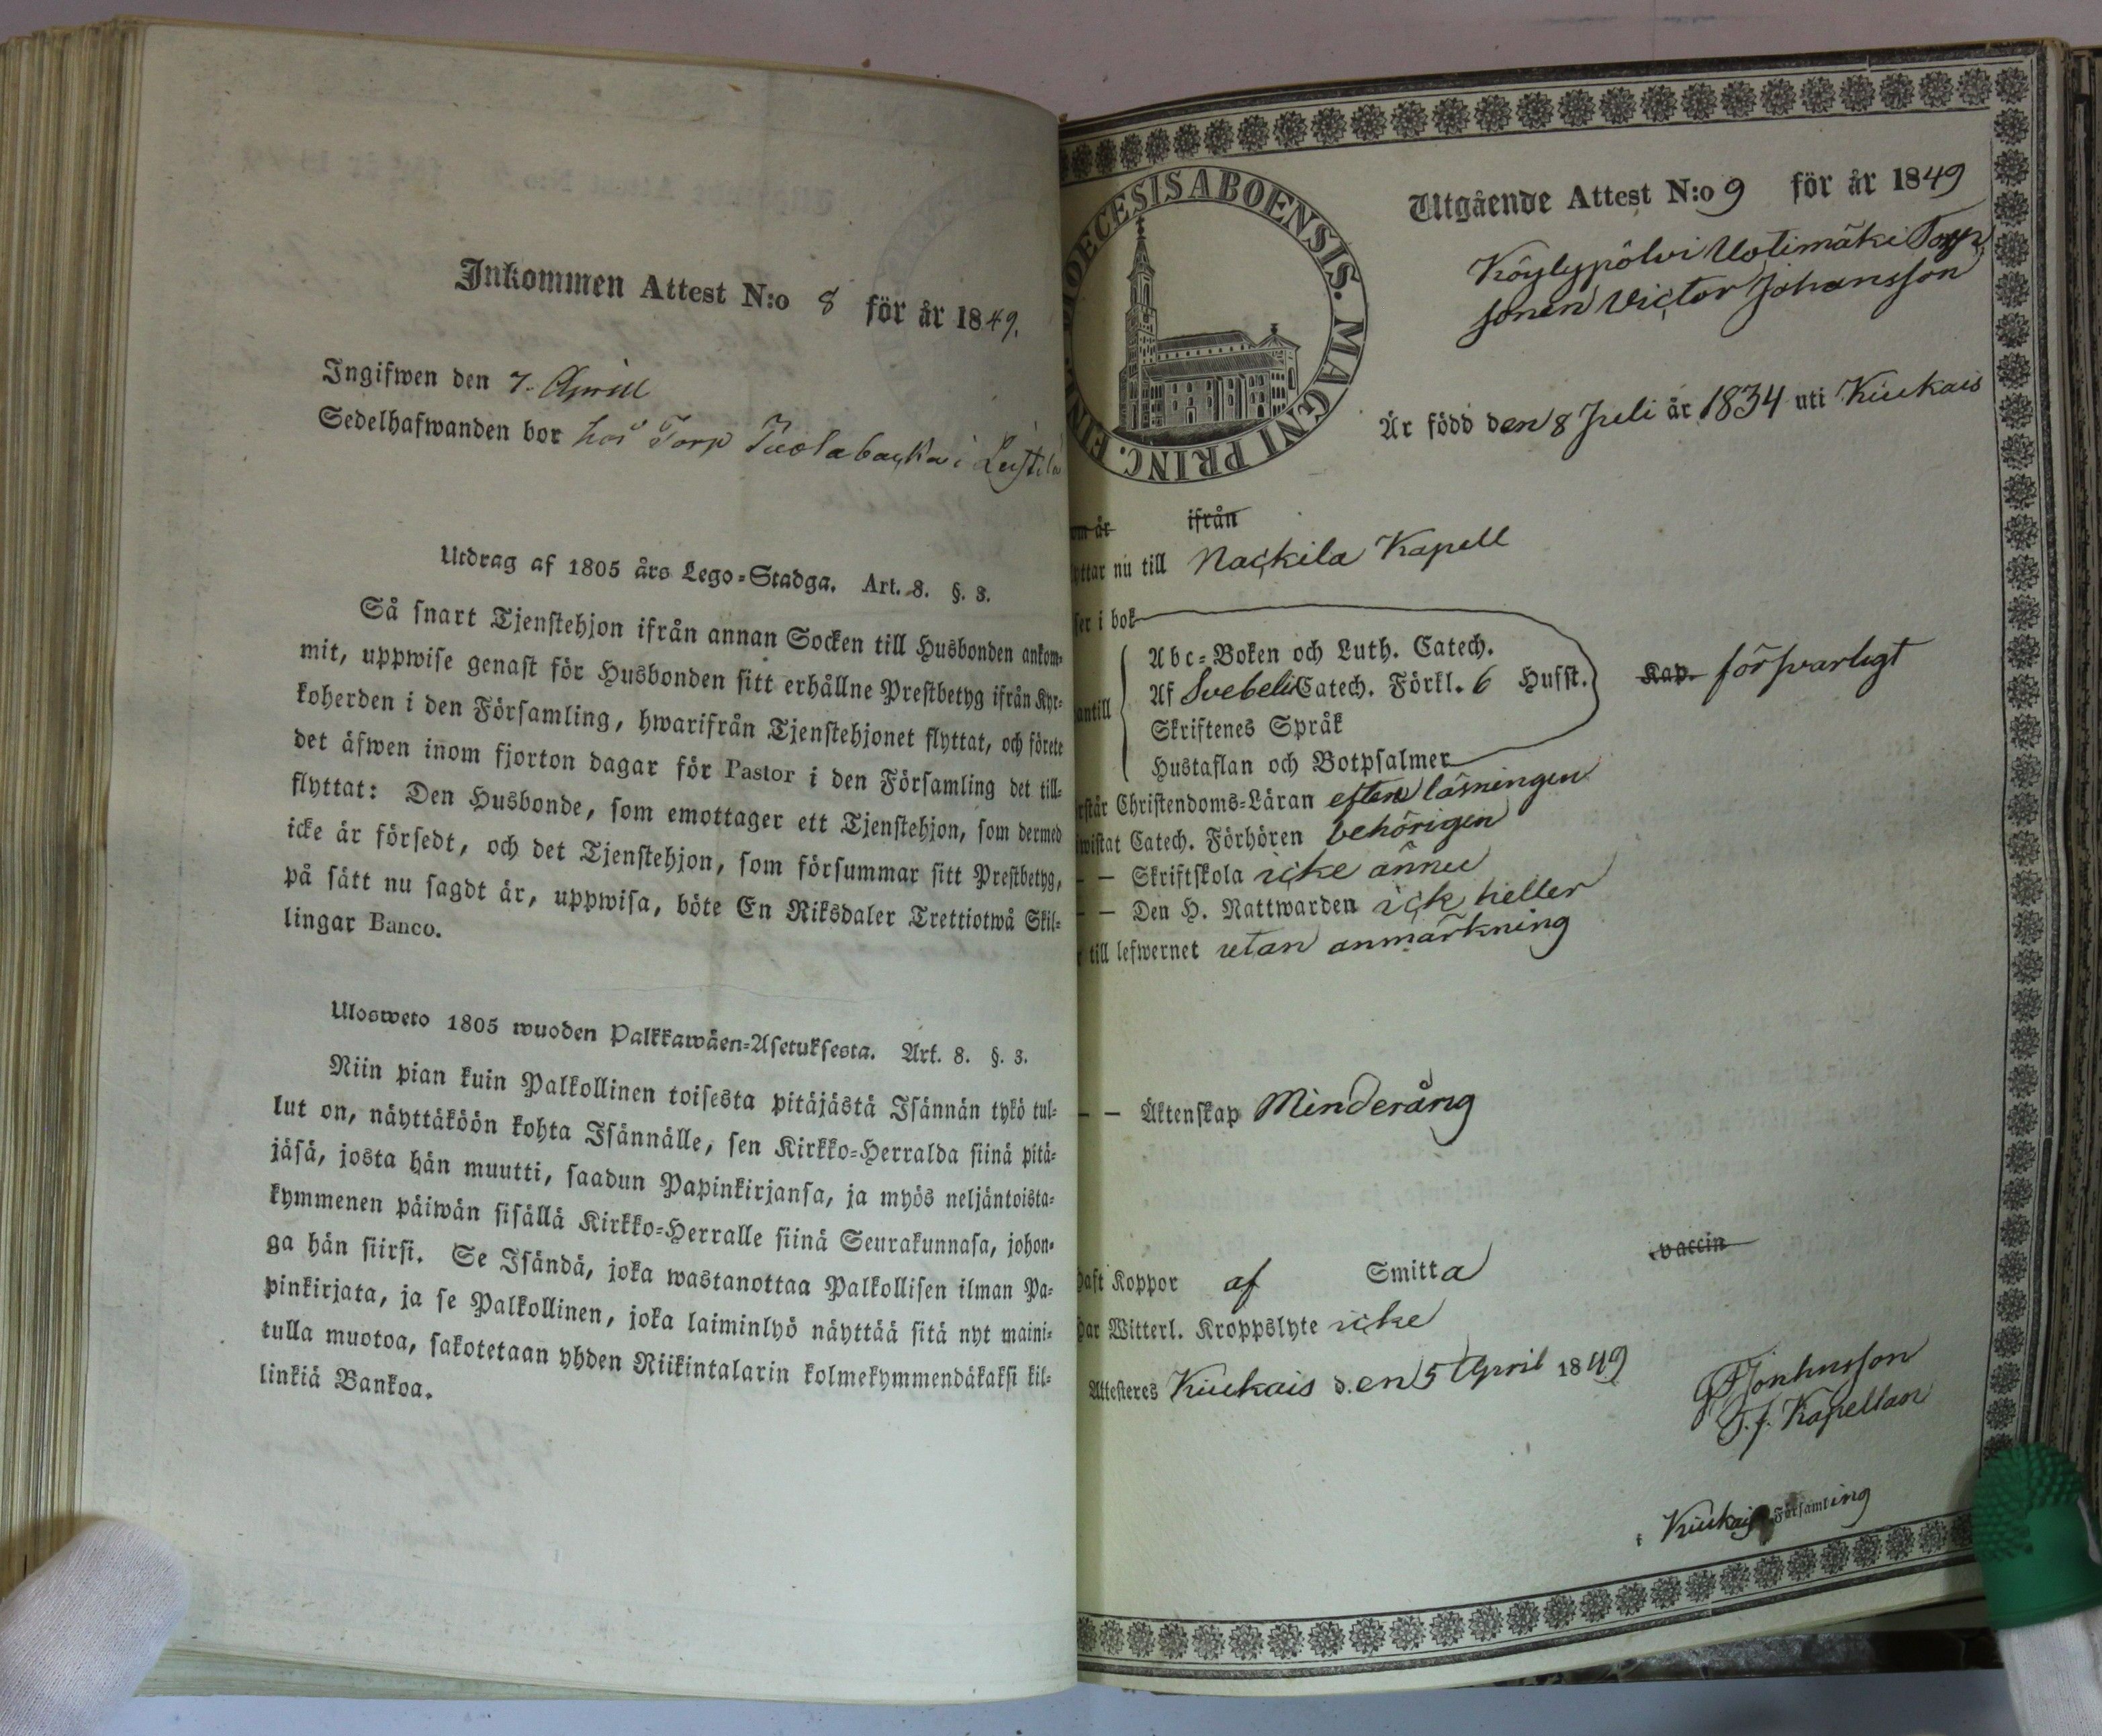 Inkommen Attest N:o 8 för år 1849.
Ingifwen den 7. Aprill
Sedelhafwanden bor hos Torp i
Utdrag af 1805 års Lego-Stadga. Art. 8. §. 3.
Så snart Tjenstehjon ifrån annan Socken till Husbonden ankom-
mit, uppwise genast för Husbonden sitt erhållne Prestbetyg ifrån Kyr-
koherden i den Församling, hwarifrån Tjenstehjonet flyttat, och förete
det äfwen inom fjorton dagar för Pastor i den Församling det till-
flyttat: Den Husbonde, som emottager ett Tjenstehjon, som dermed
icke är försedt, och det Tjenstehjon, som försummar sitt Prestbetyg,
på sätt nu sagdt är, uppwisa, böte En Riksdaler Trettiotwå Skil-
lingar Banco.
Ulosweto 1805 wuoden Palkkawäen-Asetuksesta. Art. 8. §. 3.
Niin pian kuin Palkollinen toisesta pitäjästä Isännän tykö tul-
lut on, näyttäköön kohta Isännälle, sen Kirkko-Herralda siinä pitä-
jäsä, josta hän muutti, saadun Papinkirjansa, ja myös neljäntoista-
kymmenen päiwän sisällä Kirkko-Herralle siinä Seurakunnasa, johon-
ga hän siirsi. Se Isändä, joka wastanottaa Palkollisen ilman Pa-
pinkirjata, ja se Palkollinen, joka laiminlyö näyttää sitä nyt maini-
tulla muotoa, sakotetaan yhden Riikintalarin kolmekymmendäkaksi kil-
linkiä Bankoa.
DIOECESIS ABOENSIS. MAGNI PRINC. FINL.
Utgående Attest N:o 9 för år 1849
Köylypölvi Uotimäki Torp
sonen Victor Johansson
Är född den 8 Juli år 1834 uti Kiukais
om är ifrån
yttar nu till Nackila Kapell
ser i bok
antill
Abc-Boken och Luth. Catech.
Af Svebelii Catech. Förkl. 6 Hufst. Kap. försvarligt
Skriftenes Språk
Hustaflan och Botpsalmer
rstår Christendoms-Läran efter läsningen
wistat Catech. Förhören behörigen
– – Skriftskola icke ännu
– – Den H. Nattwarden ick heller
r till lefwernet utan anmärkning
– – Äktenskap Minderårig
haft Koppor af Smitta vaccin
har Witterl. Kroppslyte icke
Attesteres Kiukais d. en 5 April 1849
Jonhnsson
T. f. Kapellan
i Kiukais Församling